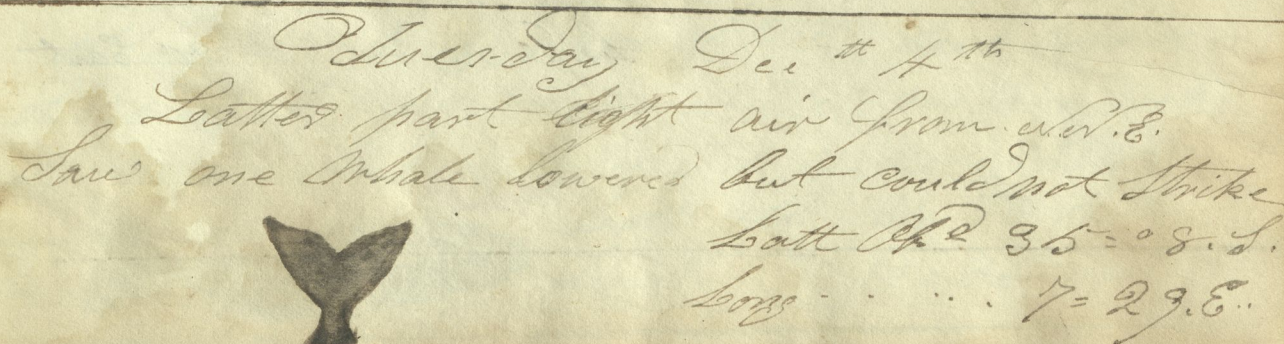 Tuesday Dec th 4th
Latter part light air from N.E.
Saw one Whale lowered but could not Strike
Latt Obd 35=08.S.
Long . . . . . 7=29.E..